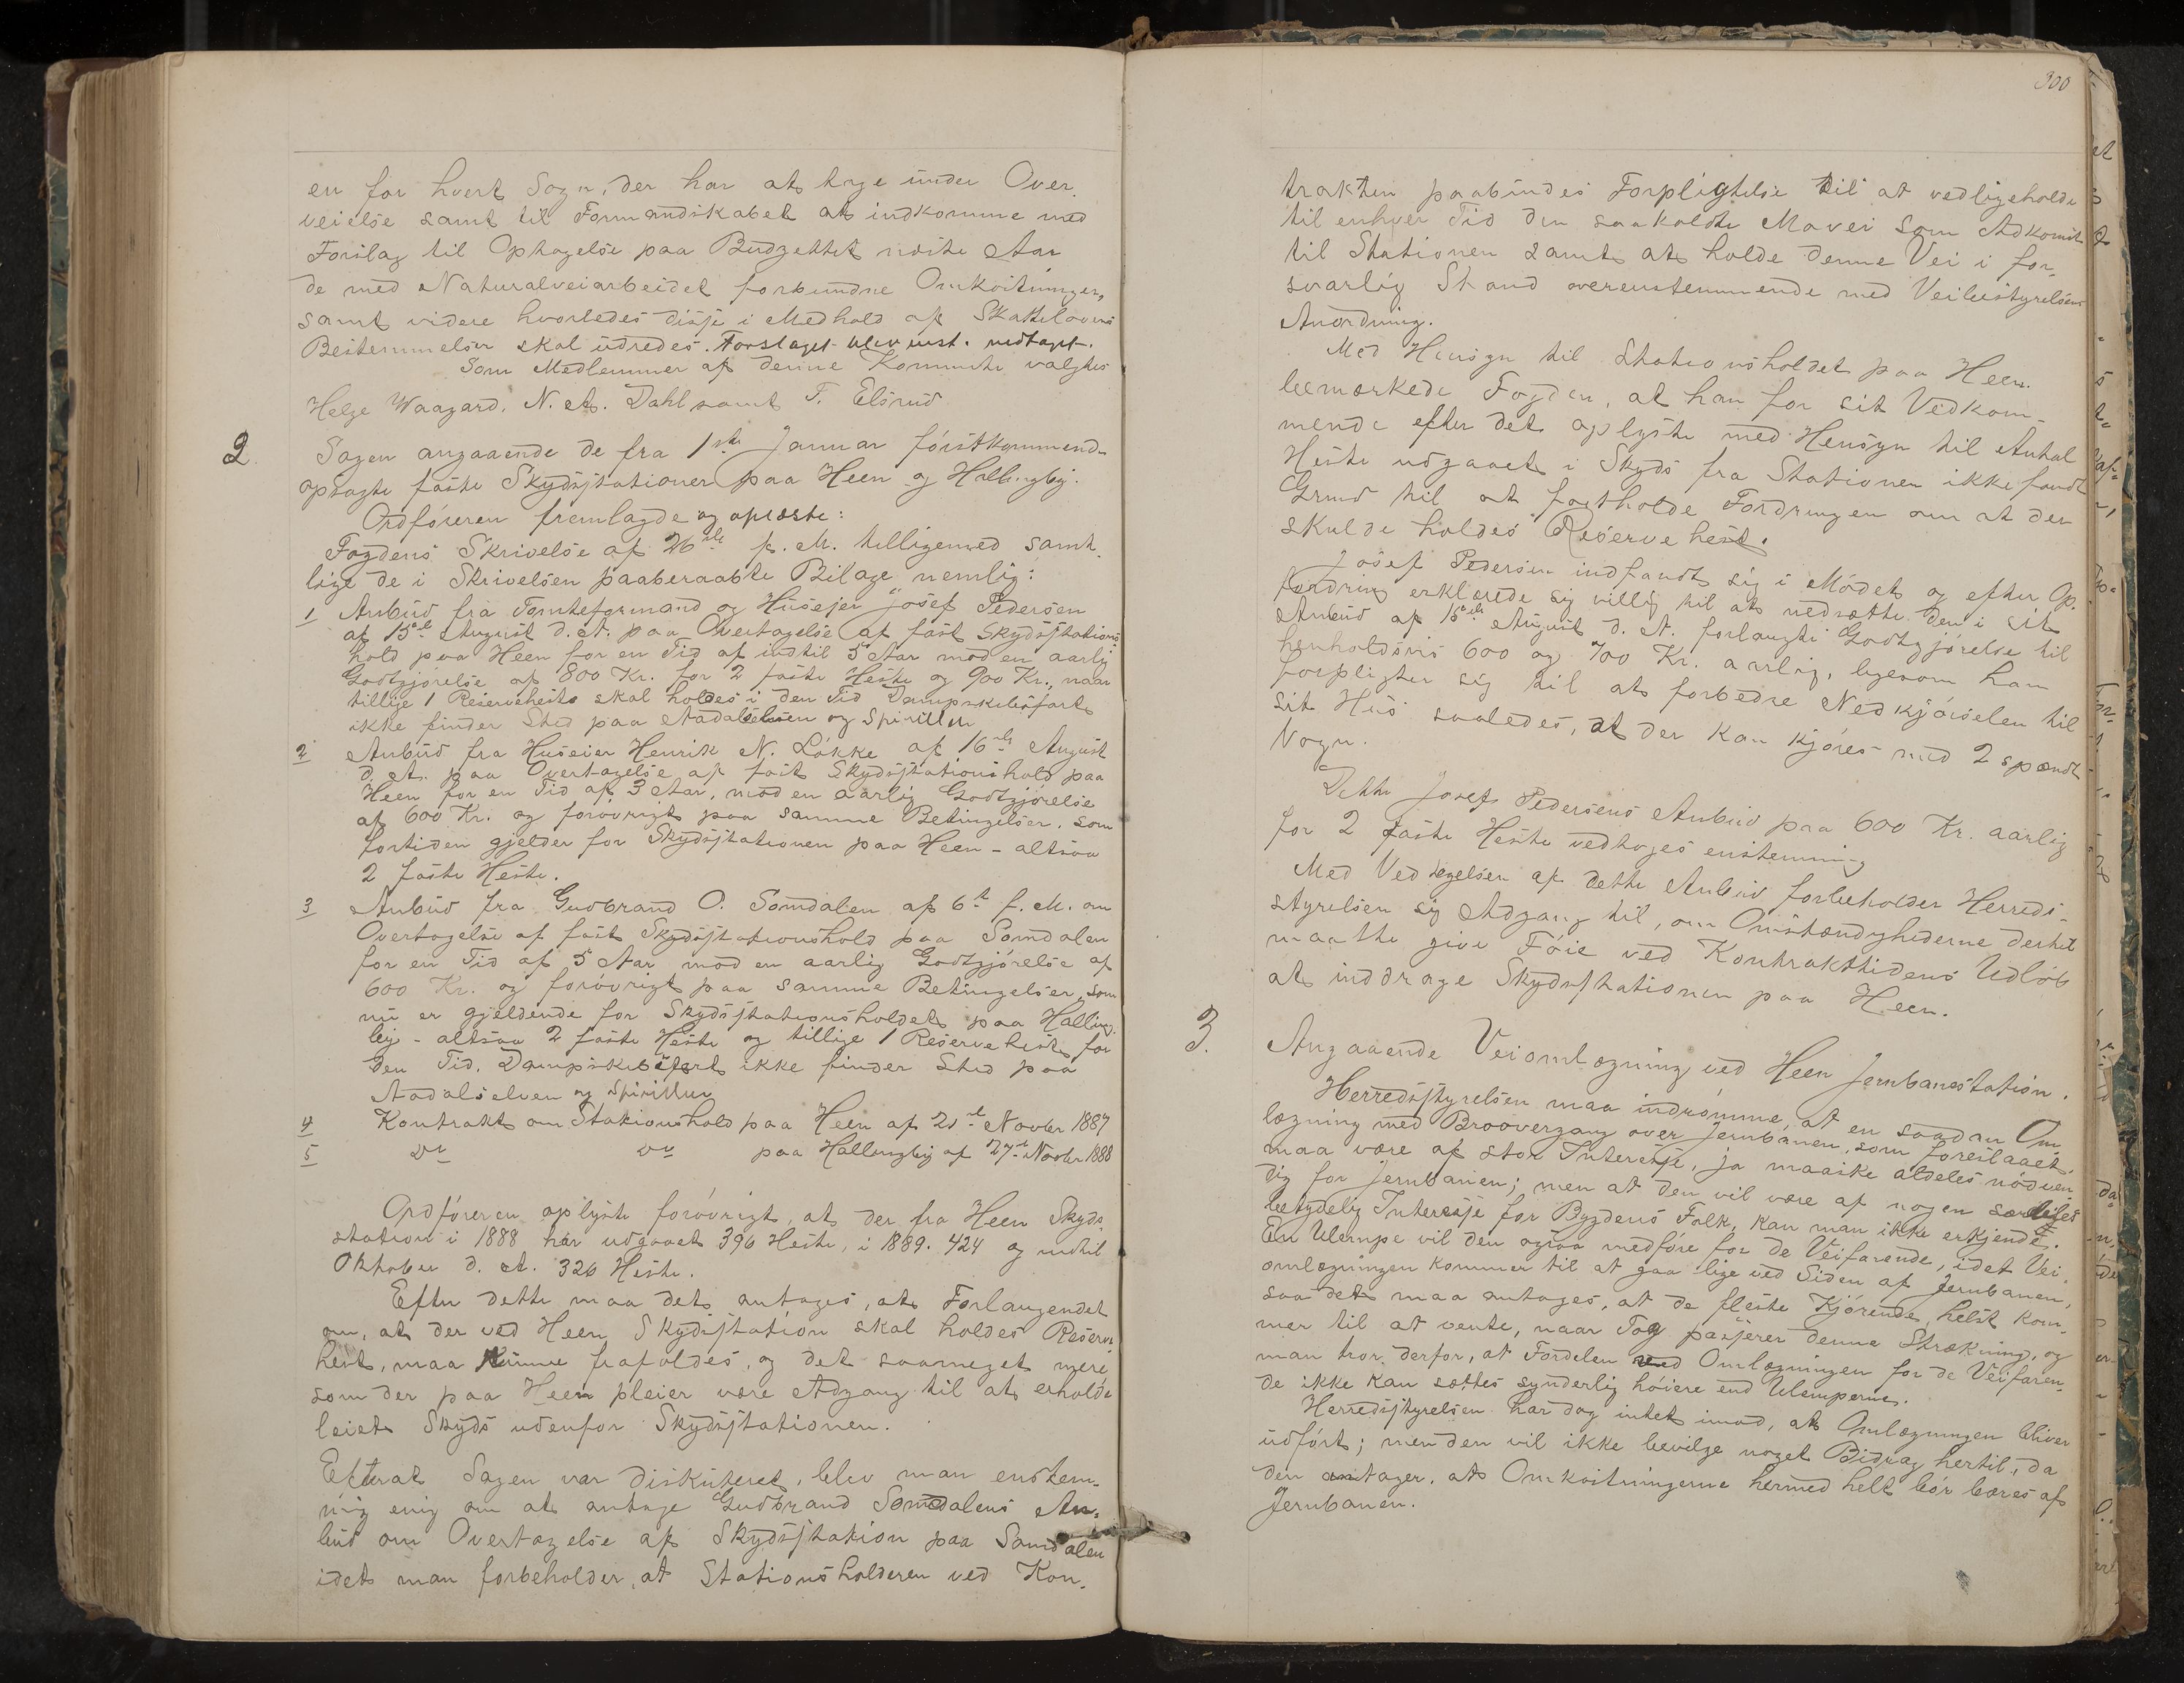 en for hvert Sogn, der har at tage under Over-
veielse samt til Formandskabet at indkomme med
Forslag til Optagelse paa Budgettet næste Aar
de med Naturalveiarbeidet forbundne Omkostninger,
samt videre hvorledes disse i Medhold af Skattelovens
Bestemmelser skal udredes. Forslaget blev enst. vedtaget.
Som Medlemmer af denne Kommite valgtes
Helge Waagaard, N. A. Dahl samt T. Elsrud
2. Sagen angaaende de fra 1ste Januar förstkommende
opsagte faste Skydsstationer paa Heen og Hallingby.
Ordföreren fremlagde og oplæste:
Fogdens Skrivelse af 26de f. M. tilligemed samt-
lige de i Skrivelsen paaberaabte Bilage nemlig:
1 Anbud fra Tomteformand og Huseier Josef Pedersen
af 15de August d. A. paa Overtagelse af fast Skydsstations-
hold paa Heen for en Tid af indtil 5 Aar mod en aarlig
Godtgjörelse af 800 Kr. for 2 faste Heste og 900 Kr., naar
tillige 1 Reservehest skal holdes i den Tid Dampskibsfart
ikke finder Sted paa Aadalselven og Spirillen
2 Anbud fra Huseier Henrik N. Løkke af 16de August
d. A. paa Overtagelse af fast Skydsstationshold paa
Heen for en Tid af 3 Aar, mod en aarlig Godtgjörelse
af 600 Kr. og forövrigt paa samme Betingelser, som
fortiden gjelder for Skydsstationen paa Heen - altsaa
2 faste Heste.
3 Anbud fra Gudbrand O. Somdalen af 6te f. M. om
Overtagelse af fast Skydsstationshold paa Somdalen
for en Tid af 5 Aar mod en aarlig Godtgjörelse af
600 Kr. og forövrigt paa samme Betingelser, som
nu er gjeldende for Skydsstationsholdet paa Halling-
by - altsaa 2 faste Heste og tillige 1 Reservehest for
den Tid, Dampskibsfart ikke finder Sted paa
Aadalselven og Spirillen
4 Kontrakt om Stationshold paa Heen af 21de Novbr 1887
5 Do Do paa Hallingby af 27de Novbr 1888
Ordföreren oplyste forövrigt, at der fra Heen Skyds-
station i 1888 har udgaaet 396 Heste, i 1889. 424 og indtil
Oktober d. A. 326 Heste.
Efter dette maa det antages, at Forlangendet
om, at der ved Heen Skydsstation skal holdes Reserve-
hest, maa kunne frafaldes, og det saameget mere
som der paa Heen pleier være Adgang til at erholde
leiet Skyds udenfor Skydsstationen.
Efterat Sagen var diskuteret, blev man enstem-
mig enig om at antage Gudbrand Somdalens An-
bud om Overtagelse af Skydsstation paa Somdalen
idet man forbeholder, at Stationsholderen ved Kon-
300
trakten paabindes Forpligtelse til at vedligeholde
til enhver Tid den saakaldte Movei som Adkomst
til Stationen samt at holde denne Vei i for-
svarlig Stand overenstemmende med Veibestyrelsens
Anordning.
Med Hensyn til Stationsholdet paa Heen
bemærkede Fogden, at han for sit Vedkom-
mende efter det oplyste med Hensyn til Antal
Heste udgaaet i Skyds fra Stationen ikke fandt
Grund til at fastholde Fordringen om at der
skulde holdes Reservehest.
Josef Pedersen indfandt sig i Mödet og efter Op-
fordring erklærede sig villig til at nedsætte den i sit
Anbud af 15de August d. A. forlangte Godtgjörelse til
henholdsvis 600 og 700 Kr. aarlig, ligesom han
forpligter sig til at forbedre Nedkjörselen til
sit Hus saaledes, at der kan kjöres med 2 spændt
Vogn.
Dette Josef Pedersens Anbud paa 600 Kr. aarlig
for 2 faste Heste vedtoges enstemmig
Med Vedtagelsen af dette Anbud forbeholder Herreds-
styrelsen sig Adgang til, om Omstændighederne dertil
maatte give Föie ved Kontrakttidens Udlöb
at inddrage Skydsstationen paa Heen.
3. Angaaende Veiomlægning ved Heen Jernbanestation.
Herredsstyrelsen maa indrömme, at en saadan Om-
lægning med Broovergang over Jernbanen, som foreslaaet,
maa være af stor Interesse, ja maaske aldeles nödven-
dig for Jernbanen; men at den vil være af nogen særdeles
betydelig Interesse for Bygdens Folk, kan man ikke erkjende.
En Ulempe vil den ogsaa medföre for de Veifarende, idet Vei-
omlægningen kommer til at gaa lige ved Siden af Jernbanen,
saa det maa antages, at de fleste Kjörende helst kom-
mer til at vente, naar Tog passerer denne Strækning, og
man tror derfor, at Fordelen ved Omlægningen for de Veifaren-
de ikke kan sættes synderlig höiere end Ulemperne.
Herredsstyrelsen har dog intet imod, at Omlægningen bliver
udfört; men den vil ikke bevilge noget Bidrag hertil, da
den antager, at Omkostningerne hermed helt bör bæres af
Jernbanen.